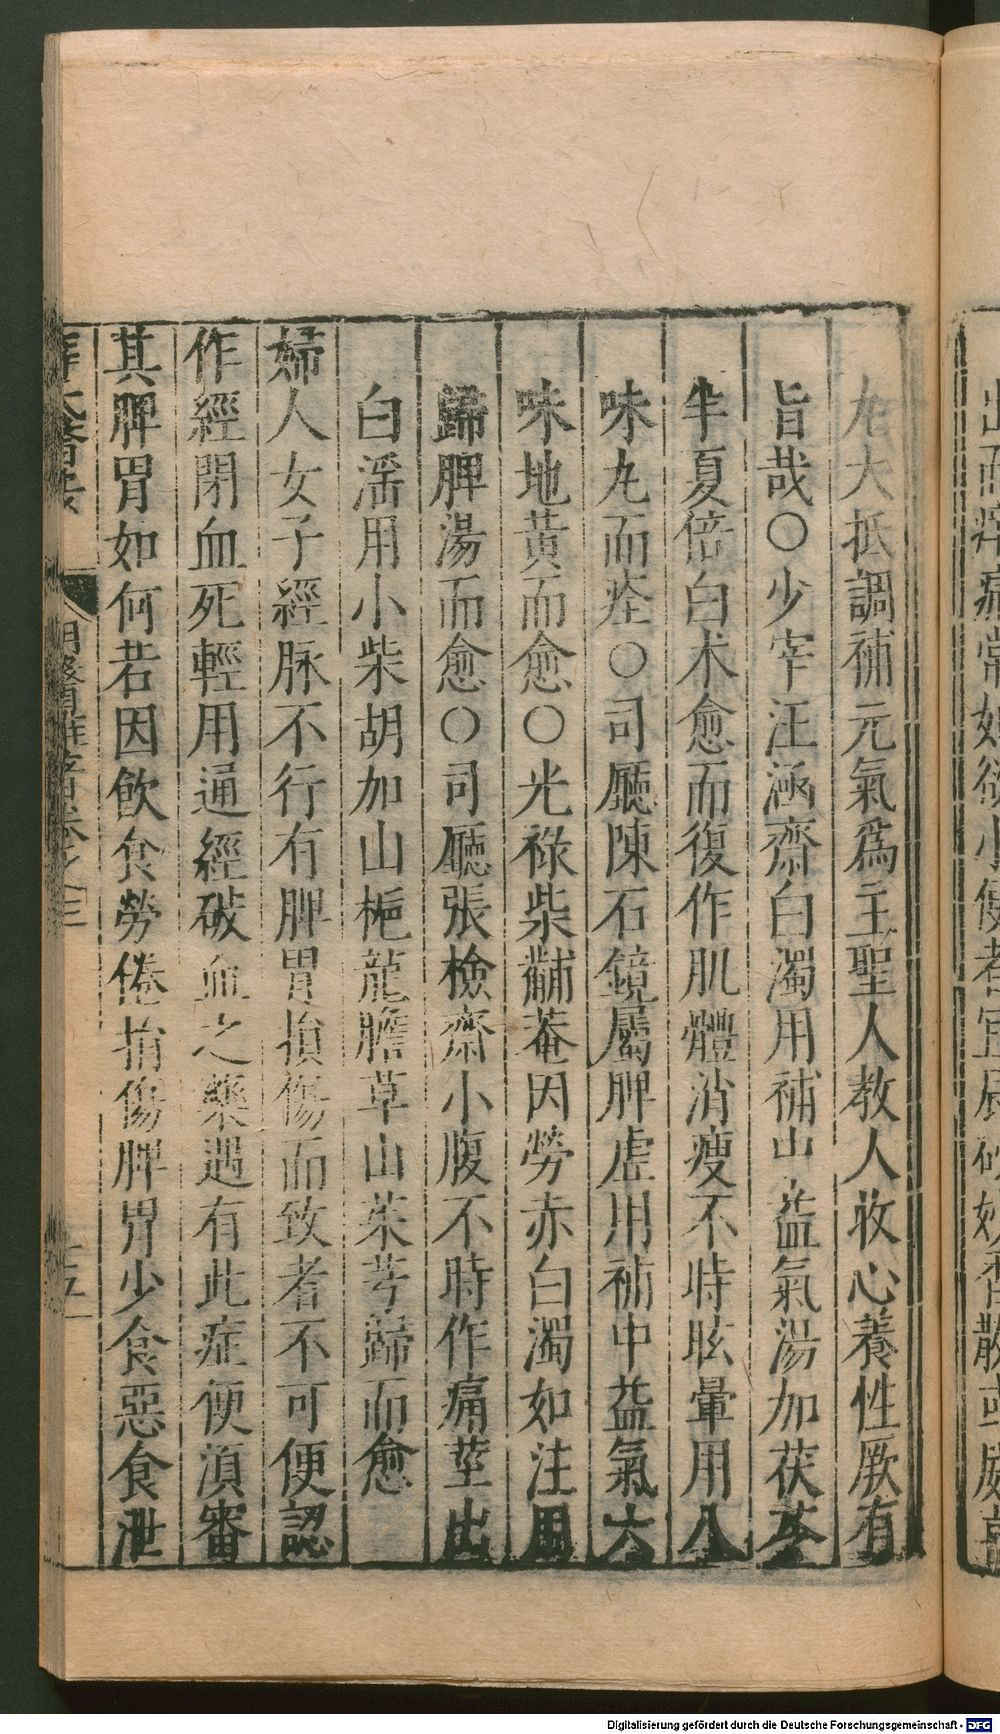 大抵調補元氣爲主聖人教人收心養性厥有
旨哉○少宰汪涵齋白濁用補中益氣湯加茯苓
半夏倍白术愈而復作肌體消瘦不時眩暈用八
味丸而痊○司廳陳石鏡屬脾虛用補中益氣六
味地黄而愈○光祿柴黼菴因勞赤白濁如注用
歸脾湯而愈○司廳張檢齋小腹不時作痛莖出
白滛用小柴胡加山梔龍膽草山茱芎歸而愈
婦人女子經脉不行有脾胃損傷而致者不可便認
作經閉血死輕用通經破血之藥遇有此症便湏審
其脾胃如何若因飲食勞倦損傷脾胃少食惡食泄
Digitalisierung gefördert durch die Deutsche Forschungsgemeinschaft - DFG